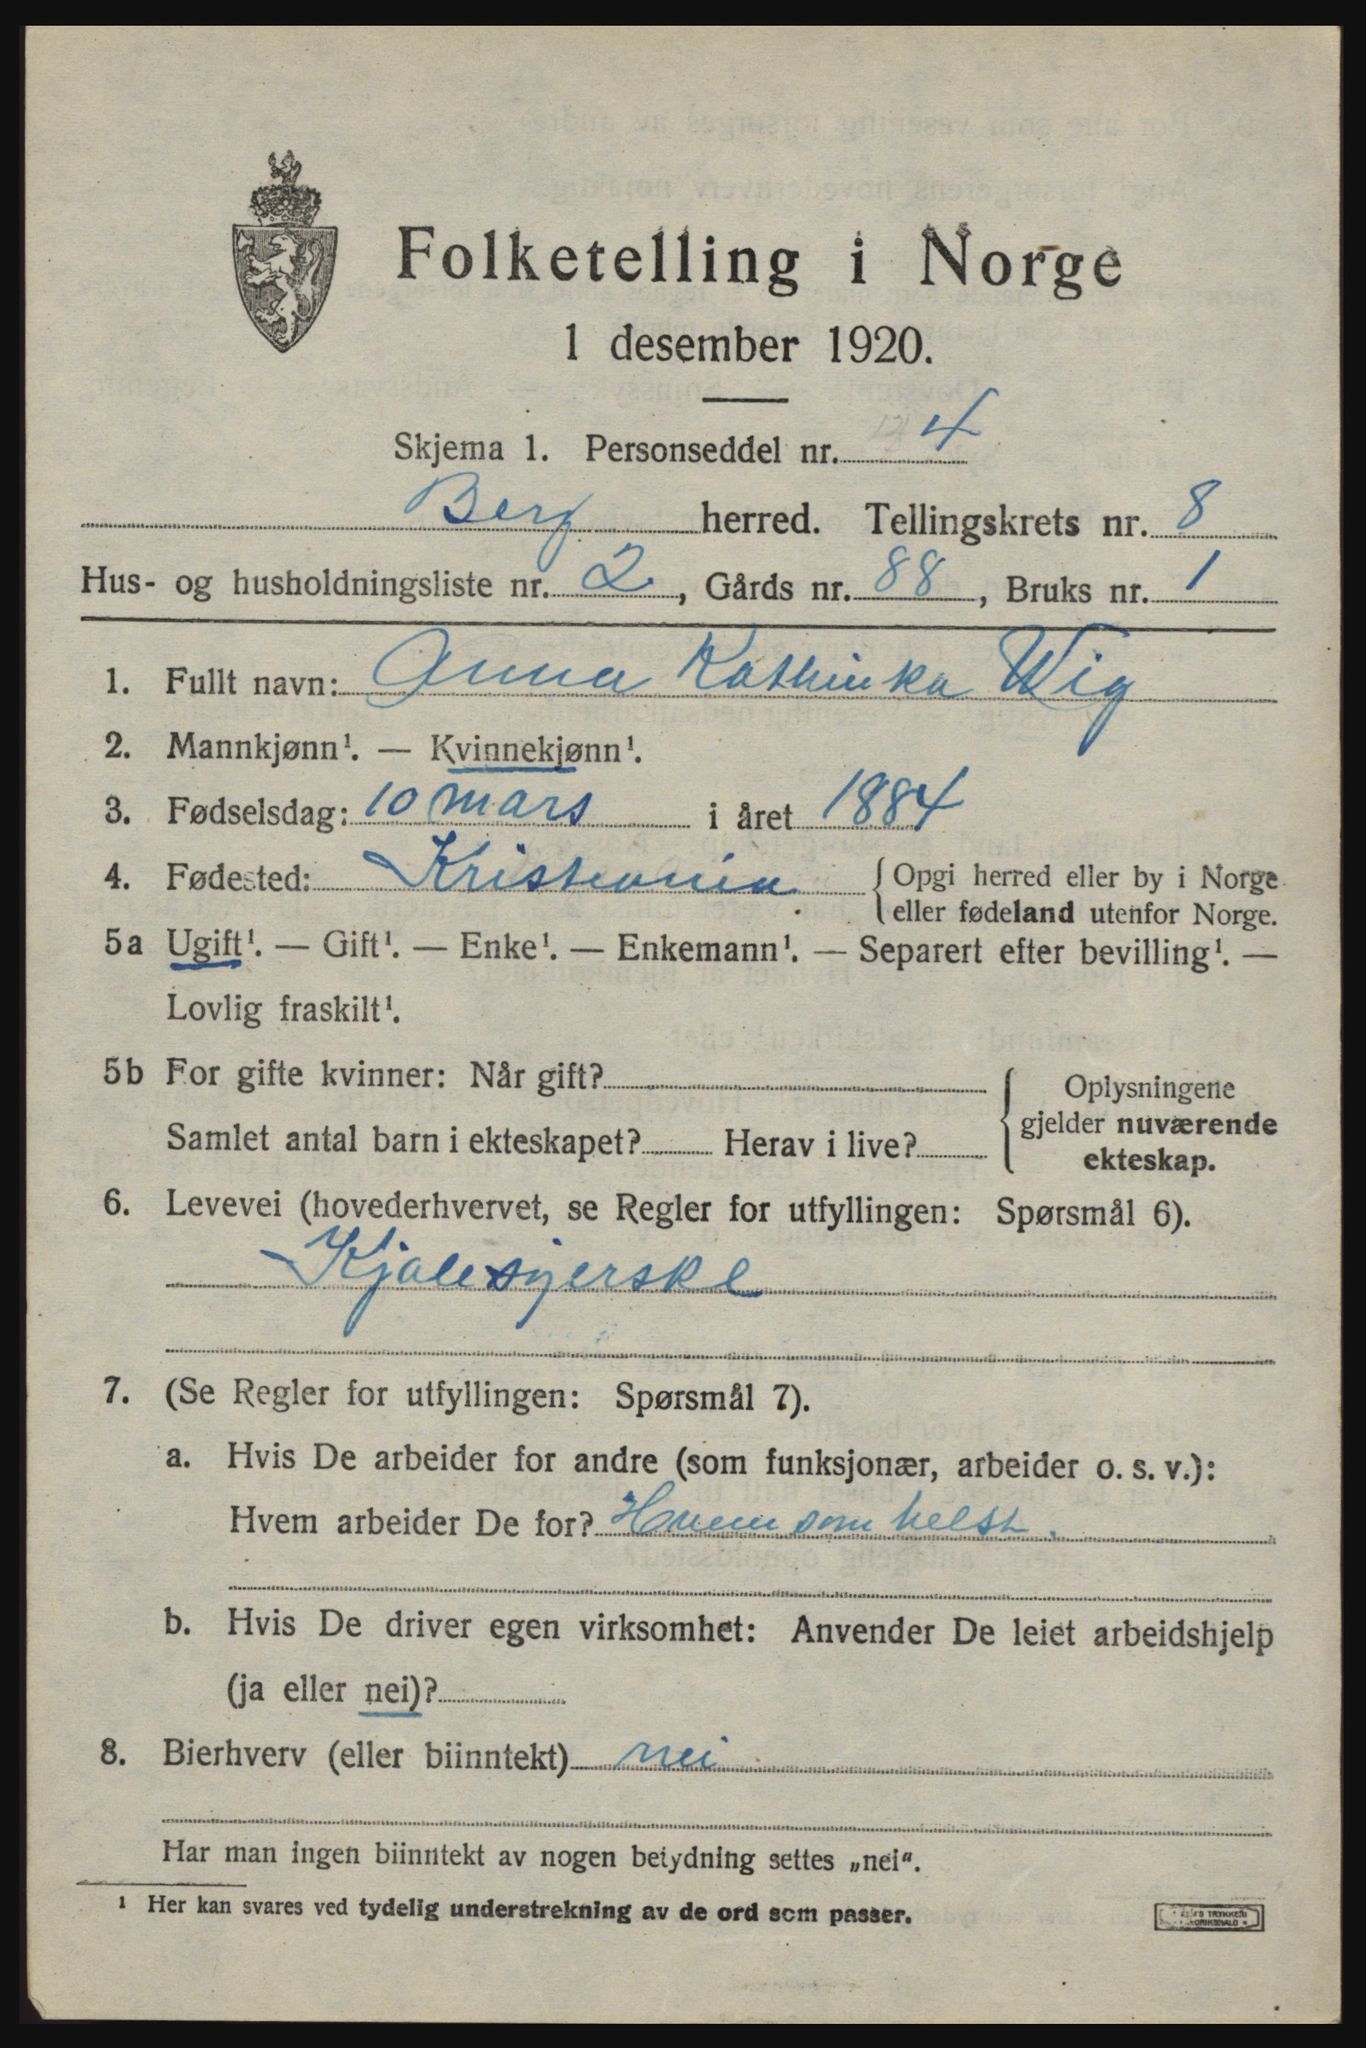 Folketelling i Norge
1 desember 1920.
Skjema 1. Personseddel nr. 4
Berg herred. Tellingskrets nr. 8
Hus- og husholdningsliste nr. 2, Gårds nr. 88, Bruks nr. 1
1. Fullt navn: Anna Kathinka Wig
2. Mannkjønn¹. — Kvinnekjønn¹.
3. Fødselsdag: 10 mars i året 1884
4. Fødested: Kristiania { Opgi herred eller by i Norge
eller fødeland utenfor Norge.
5a Ugift¹. — Gift¹. — Enke¹. — Enkemann¹. — Separert efter bevilling¹. —
Lovlig fraskilt¹.
5b For gifte kvinner: Når gift? { Oplysningene
gjelder nuværende
ekteskap.
Samlet antal barn i ekteskapet? Herav i live?
6. Levevei (hovederhvervet, se Regler for utfyllingen: Spørsmål 6).
Kjolesyerske
7. (Se Regler for utfyllingen: Spørsmål 7).
a. Hvis De arbeider for andre (som funksjonær, arbeider o. s. v.):
Hvem arbeider De for? Hvem som helst.
b. Hvis De driver egen virksomhet: Anvender De leiet arbeidshjelp
(ja eller nei)?
8. Bierhverv (eller biinntekt) nei
Har man ingen biinntekt av nogen betydning settes „nei“.
¹ Her kan svares ved tydelig understrekning av de ord som passer.